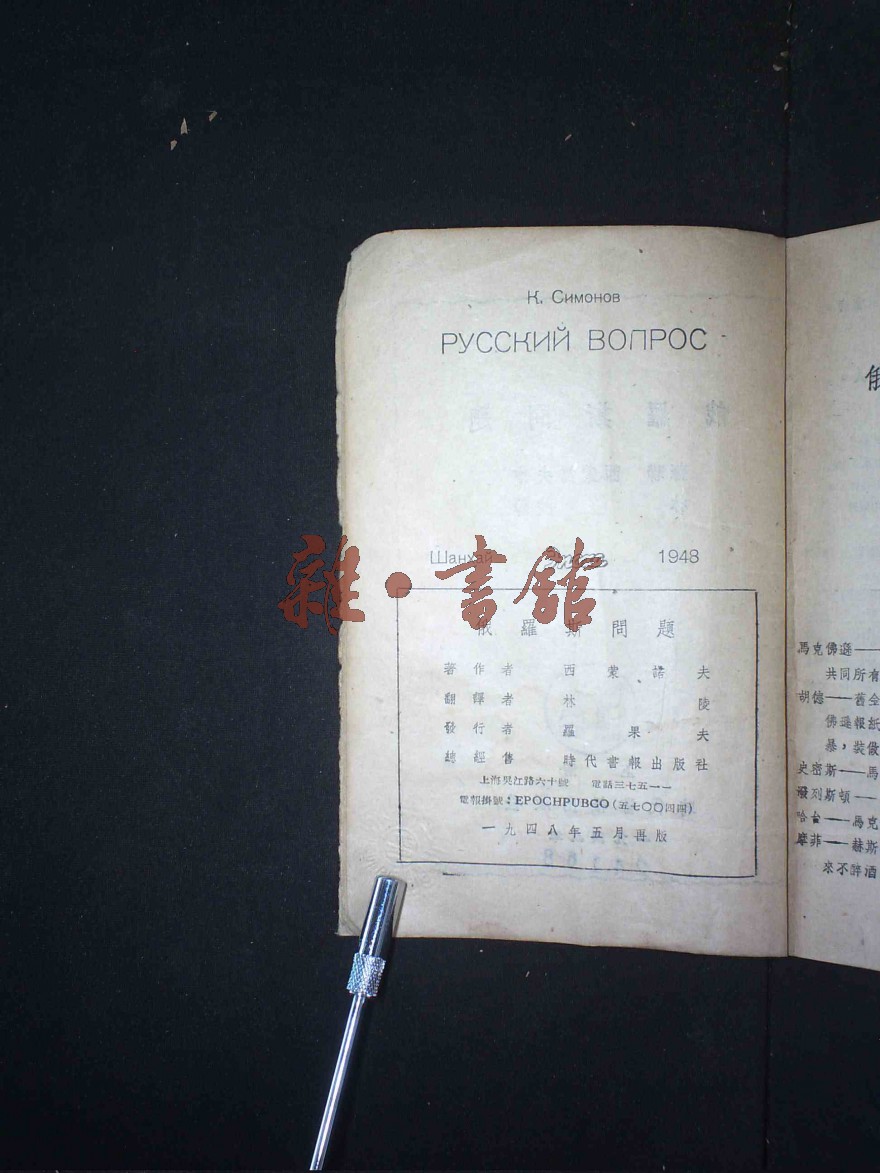 К. Симонов
РУССКИЙ ВОПРОС
Шанхай 1948
雜·書館
俄羅斯問題
著作者 西蒙諾夫
翻譯者 林陵
發行者 羅果夫
總經售 時代書報出版社
上海吳江路六十號 電話三七五一一
電報掛號：EPOCHPUBCO（五七〇〇四四）
一九四八年五月再版
俄
馬克佛遜——
共同所有
胡德——舊金
佛遜報紙
暴，裝做
史密斯——馬
潑列斯頓——
哈台——馬克
摩菲——赫斯
來不醉酒